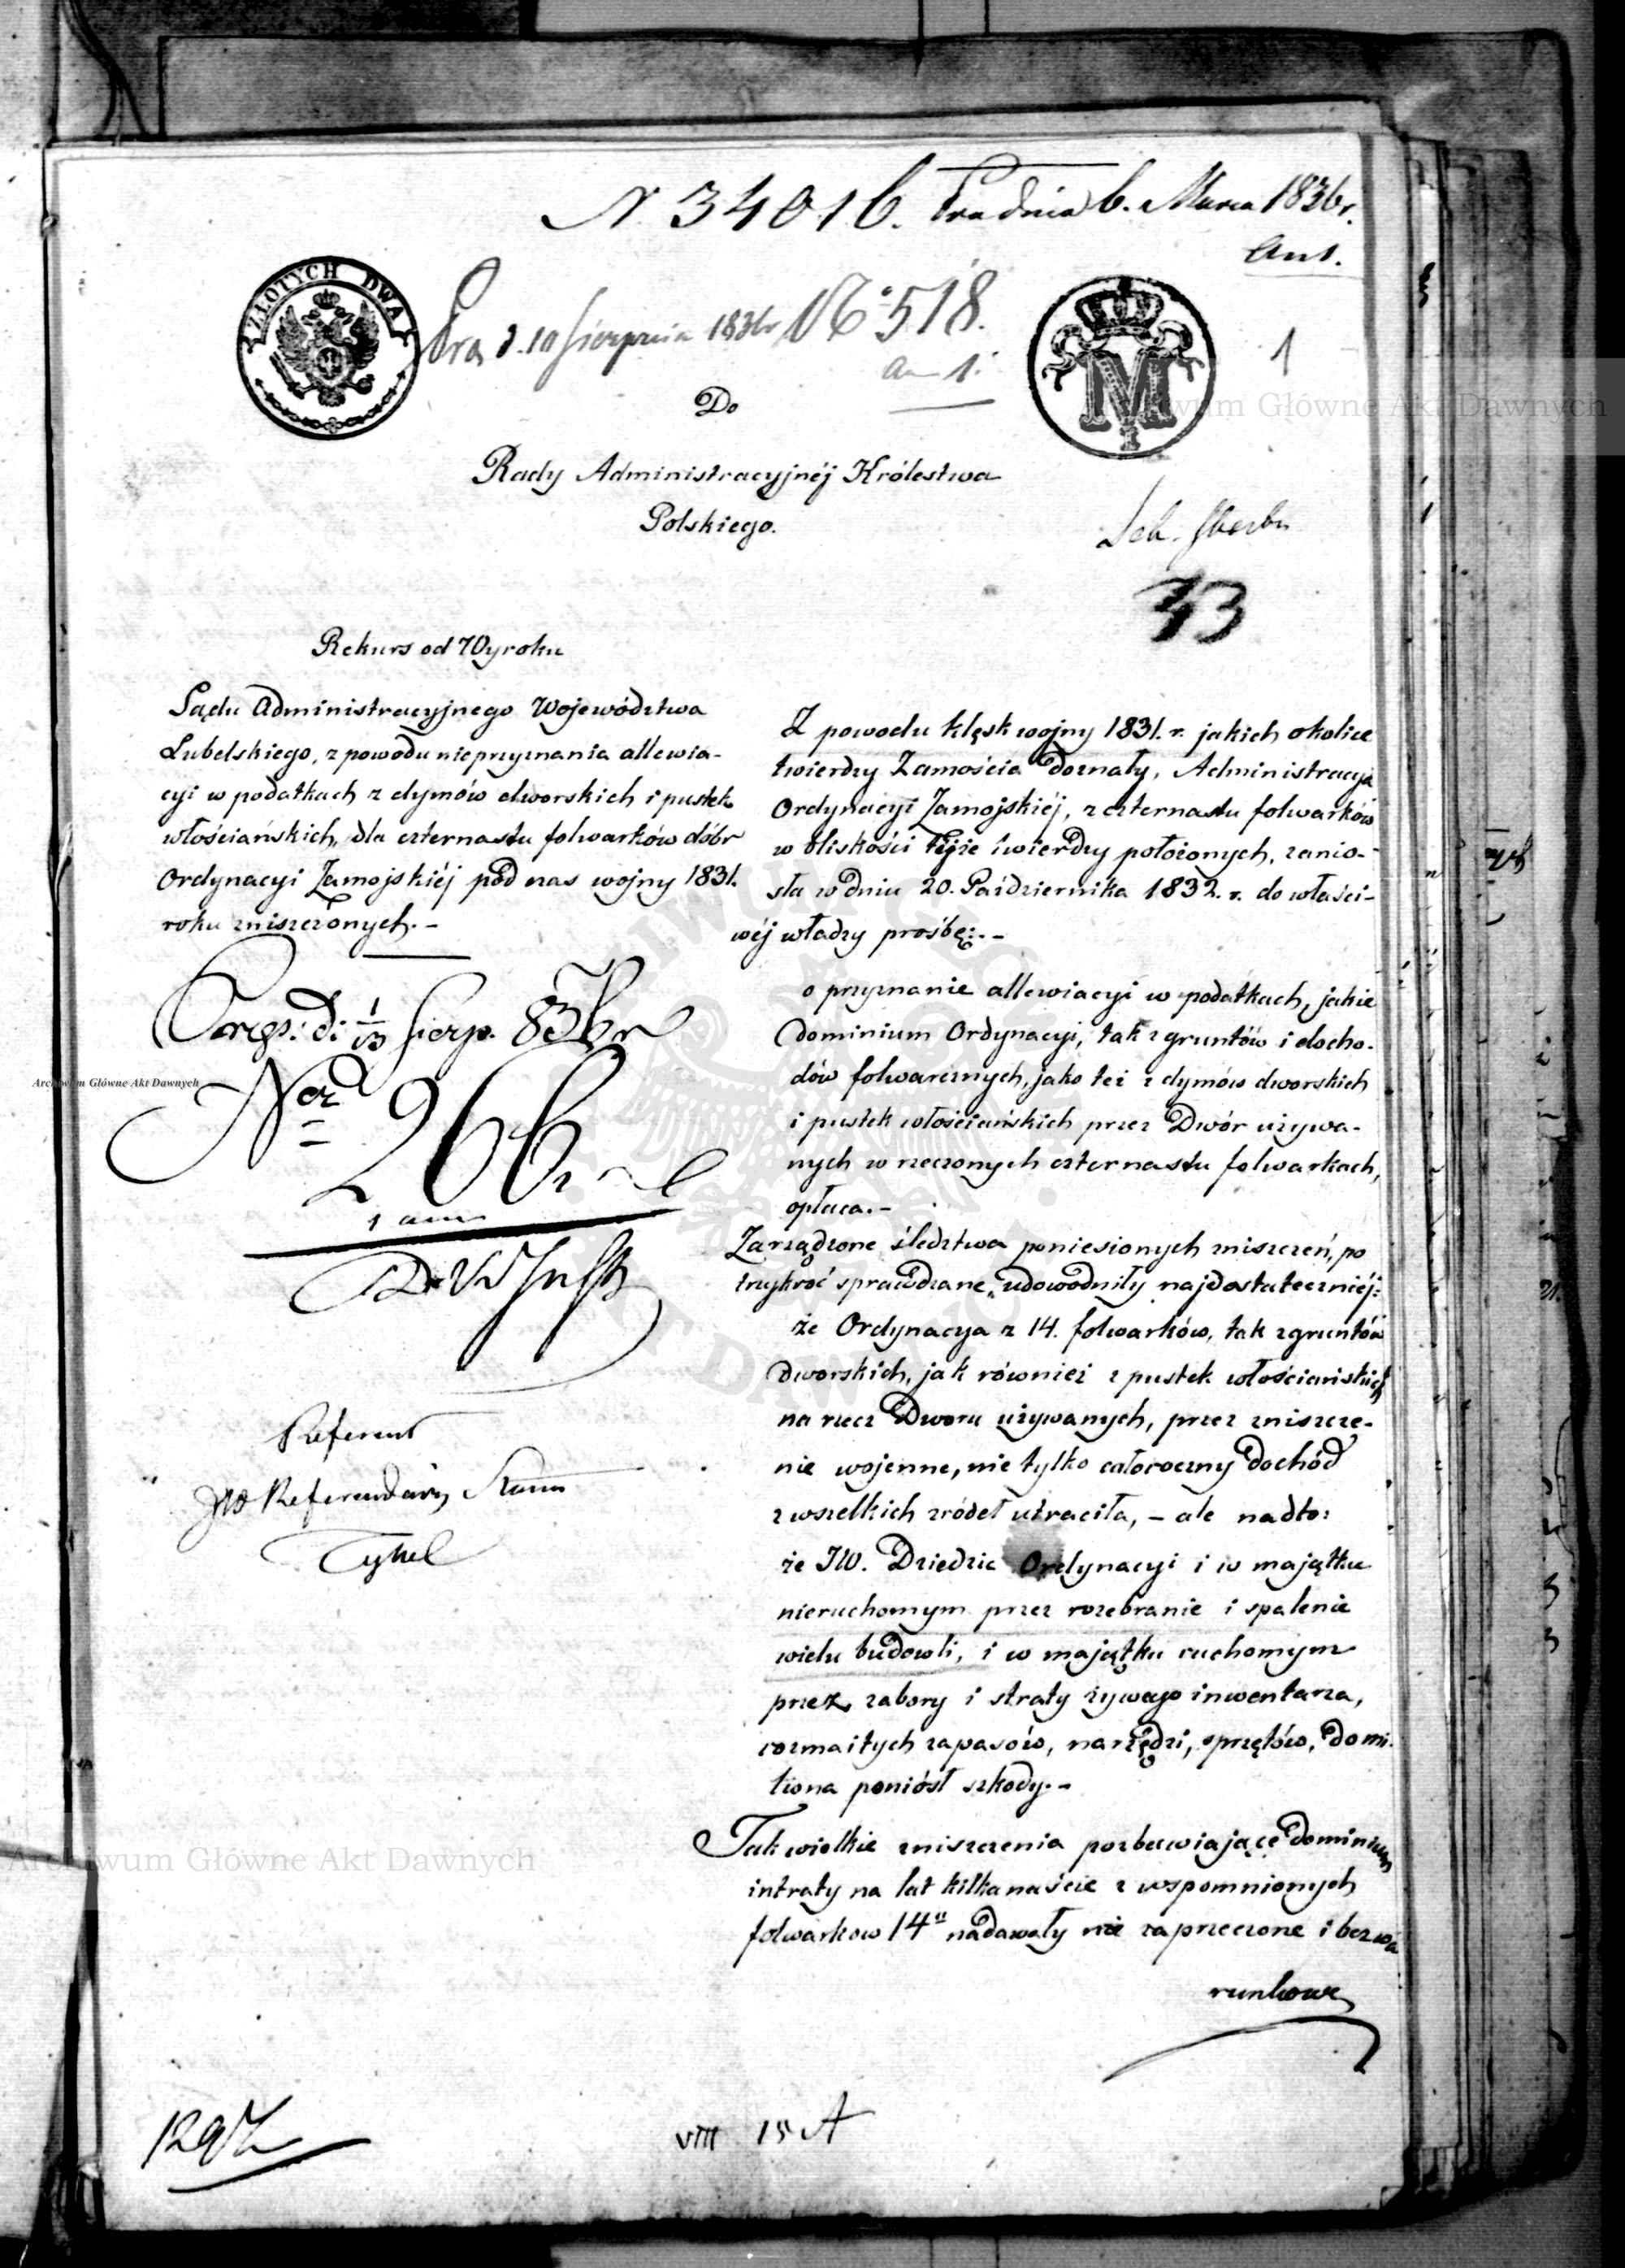 N. 34016. Pra dnia 6. Marca 1836 r.
An 1.
ZŁOTYCH DWA
Prs d. 10 Sierpnia 1836 r N° 518.
an 1.
1
M
1
Do
Rady Administracyjnéj Królestwa
Polskiego.
33
Rekurs od Wyroku
Sądu Administracyjnego Województwa
Lubelskiego, z powodu nieprzyznania allewia-
cyi w podatkach z dymów dworskich i pustek
włościańskich, dla czternastu folwarków dóbr
Ordynacyi Zamojskiéj pod czas wojny 1831.
roku zniszczonych.-
d: 1/13 Sierp. 836 r
Ner 266
1 an
Referent
JW Referendarz Stanu
Tykel
Z powodu klęsk wojny 1831. r. jakich okolice
twierdzy Zamościa doznały, Administracya
Ordynacyi Zamojskiéj, z czternastu folwarków
w bliskości tejże twierdzy położonych, zanio-
sła w dniu 20. Października 1832. r. do właści-
wéj władzy prośbę:.-
o przyznanie allewiacyi w podatkach, jakie
dominium Ordynacyi, tak z gruntów i docho-
dów folwarcznych, jako też z dymów dworskich
i pustek włościańskich przez Dwór używa-
nych w rzeczonych czternastu folwarkach,
opłaca.-
Zarządzone śledztwa poniesionych zniszczeń, po
trzykroć sprawdzane, udowodniły najdostateczniéj:
że Ordynacya z 14. folwarków, tak z gruntów
dworskich, jak również z pustek włościańskich
na rzecz Dworu używanych, przez zniszcze-
nie wojenne, nie tylko całoroczny dochód
z wszelkich źródeł utraciła, - ale nadto:
że JW. Dziedzic Ordynacyi i w majątku
nieruchomym przez rozebranie i spalenie
wielu budowli, i w majątku ruchomym
przez zabory i straty żywego inwentarza,
rozmaitych zapasów, narzędzi, sprzętów, do mi-
liona poniósł szkody.-
Tak wielkie zniszczenia pozbawiające dominium
intraty na lat kilkanaście z wspomnionych
folwarkow 14u nadawały nie zaprzeczone i bezwa
runkowe
1297
VIII 15 A
Archiwum Główne Akt Dawnych
Archiwum Główne Akt Dawnych
Archiwum Główne Akt Dawnych